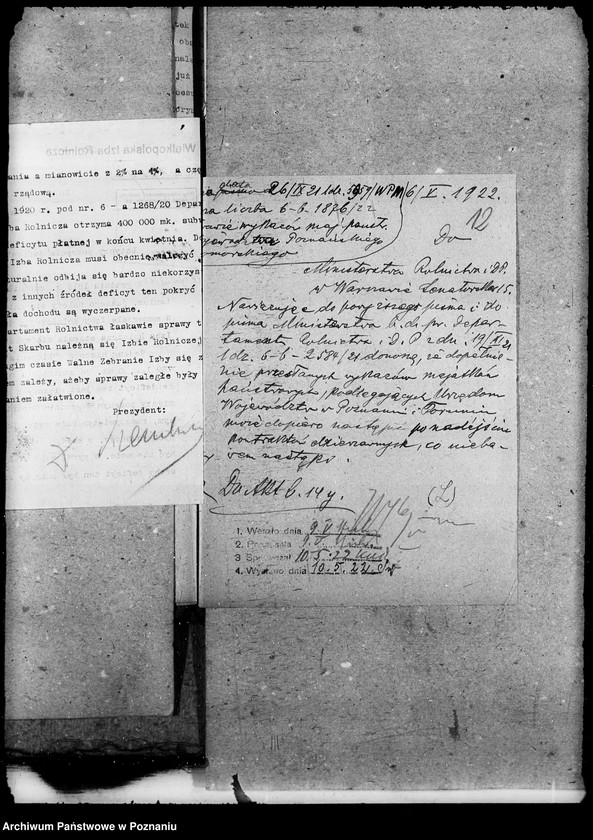 Wielkopolska Izba Rolnicza
ania a mianowicie z 2% na 4%, a czę
rządową.
1920 r. pod nr. 6 - a 1268/20 Depar
ba Rolnicza otrzyma 400 000 mk. subw
deficytu płatnej w końcu kwietnia. Do
Izba Rolnicza musi obecnie walczyć
turalnie odbija się bardzo niekorzys
z innych źródeł deficyt ten pokryć
ła dochodu są wyczerpane.
artament Rolnictwa łaskawie sprawy t
t Skarbu należą się Izbie Rolniczej
ugim czasie Walne Zebranie Izby się z
em zależy, ażeby sprawy zaległe były
aniem załatwione.
Prezydent:
tek
oba
nale
już
26/IX 21 ldz. 5959/WPM
6/V. 1922.
na liczba 6-b. 1876/22
awie wykazów maj. państ.
Województwa Poznańskiego
morskiego
12
Do
Ministerstwa Rolnictwa i D.P.
w Warszawie Senatorska 15.
Nawiązując do powyższego pisma i do
pisma Ministerstwa b. dz. pr. Depar-
tament Rolnictwa i D. P z dn. 19/XI 21
ldz. 6-b-2584/21 donoszę, że dopełnie-
nie przesłanych wykazów majątków
państwowych, podlegających Urzędom
Województw w Poznaniu i Toruniu
może dopiero nastąpić po nadejściu
kontraktów dzierżawnych, co nieba-
wem nastąpi.
Do Akt b. 14 y.
(L)
1. Weszło dnia 9.V
2. 9.V.
3 10.5.22
4. Wysłano dnia 10.5.22
Archiwum Państwowe w Poznaniu